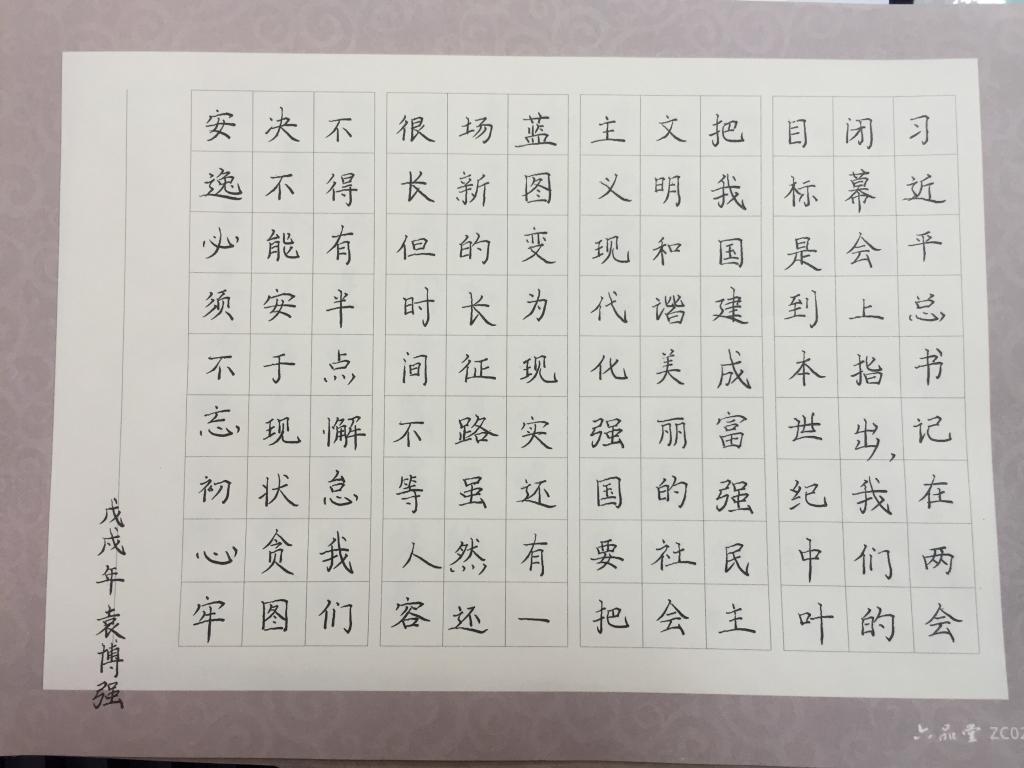 习近平总书记在两会
闭幕会上指出,我们的
目标是到本世纪中叶
把我国建成富强民主
文明和谐美丽的社会
主义现代化强国要把
蓝图变为现实还有一
场新的长征路虽然还
很长但时间不等人容
不得有半点懈怠我们
决不能安于现状贪图
安逸必须不忘初心牢
戊戌年袁博强
六品堂 ZC02